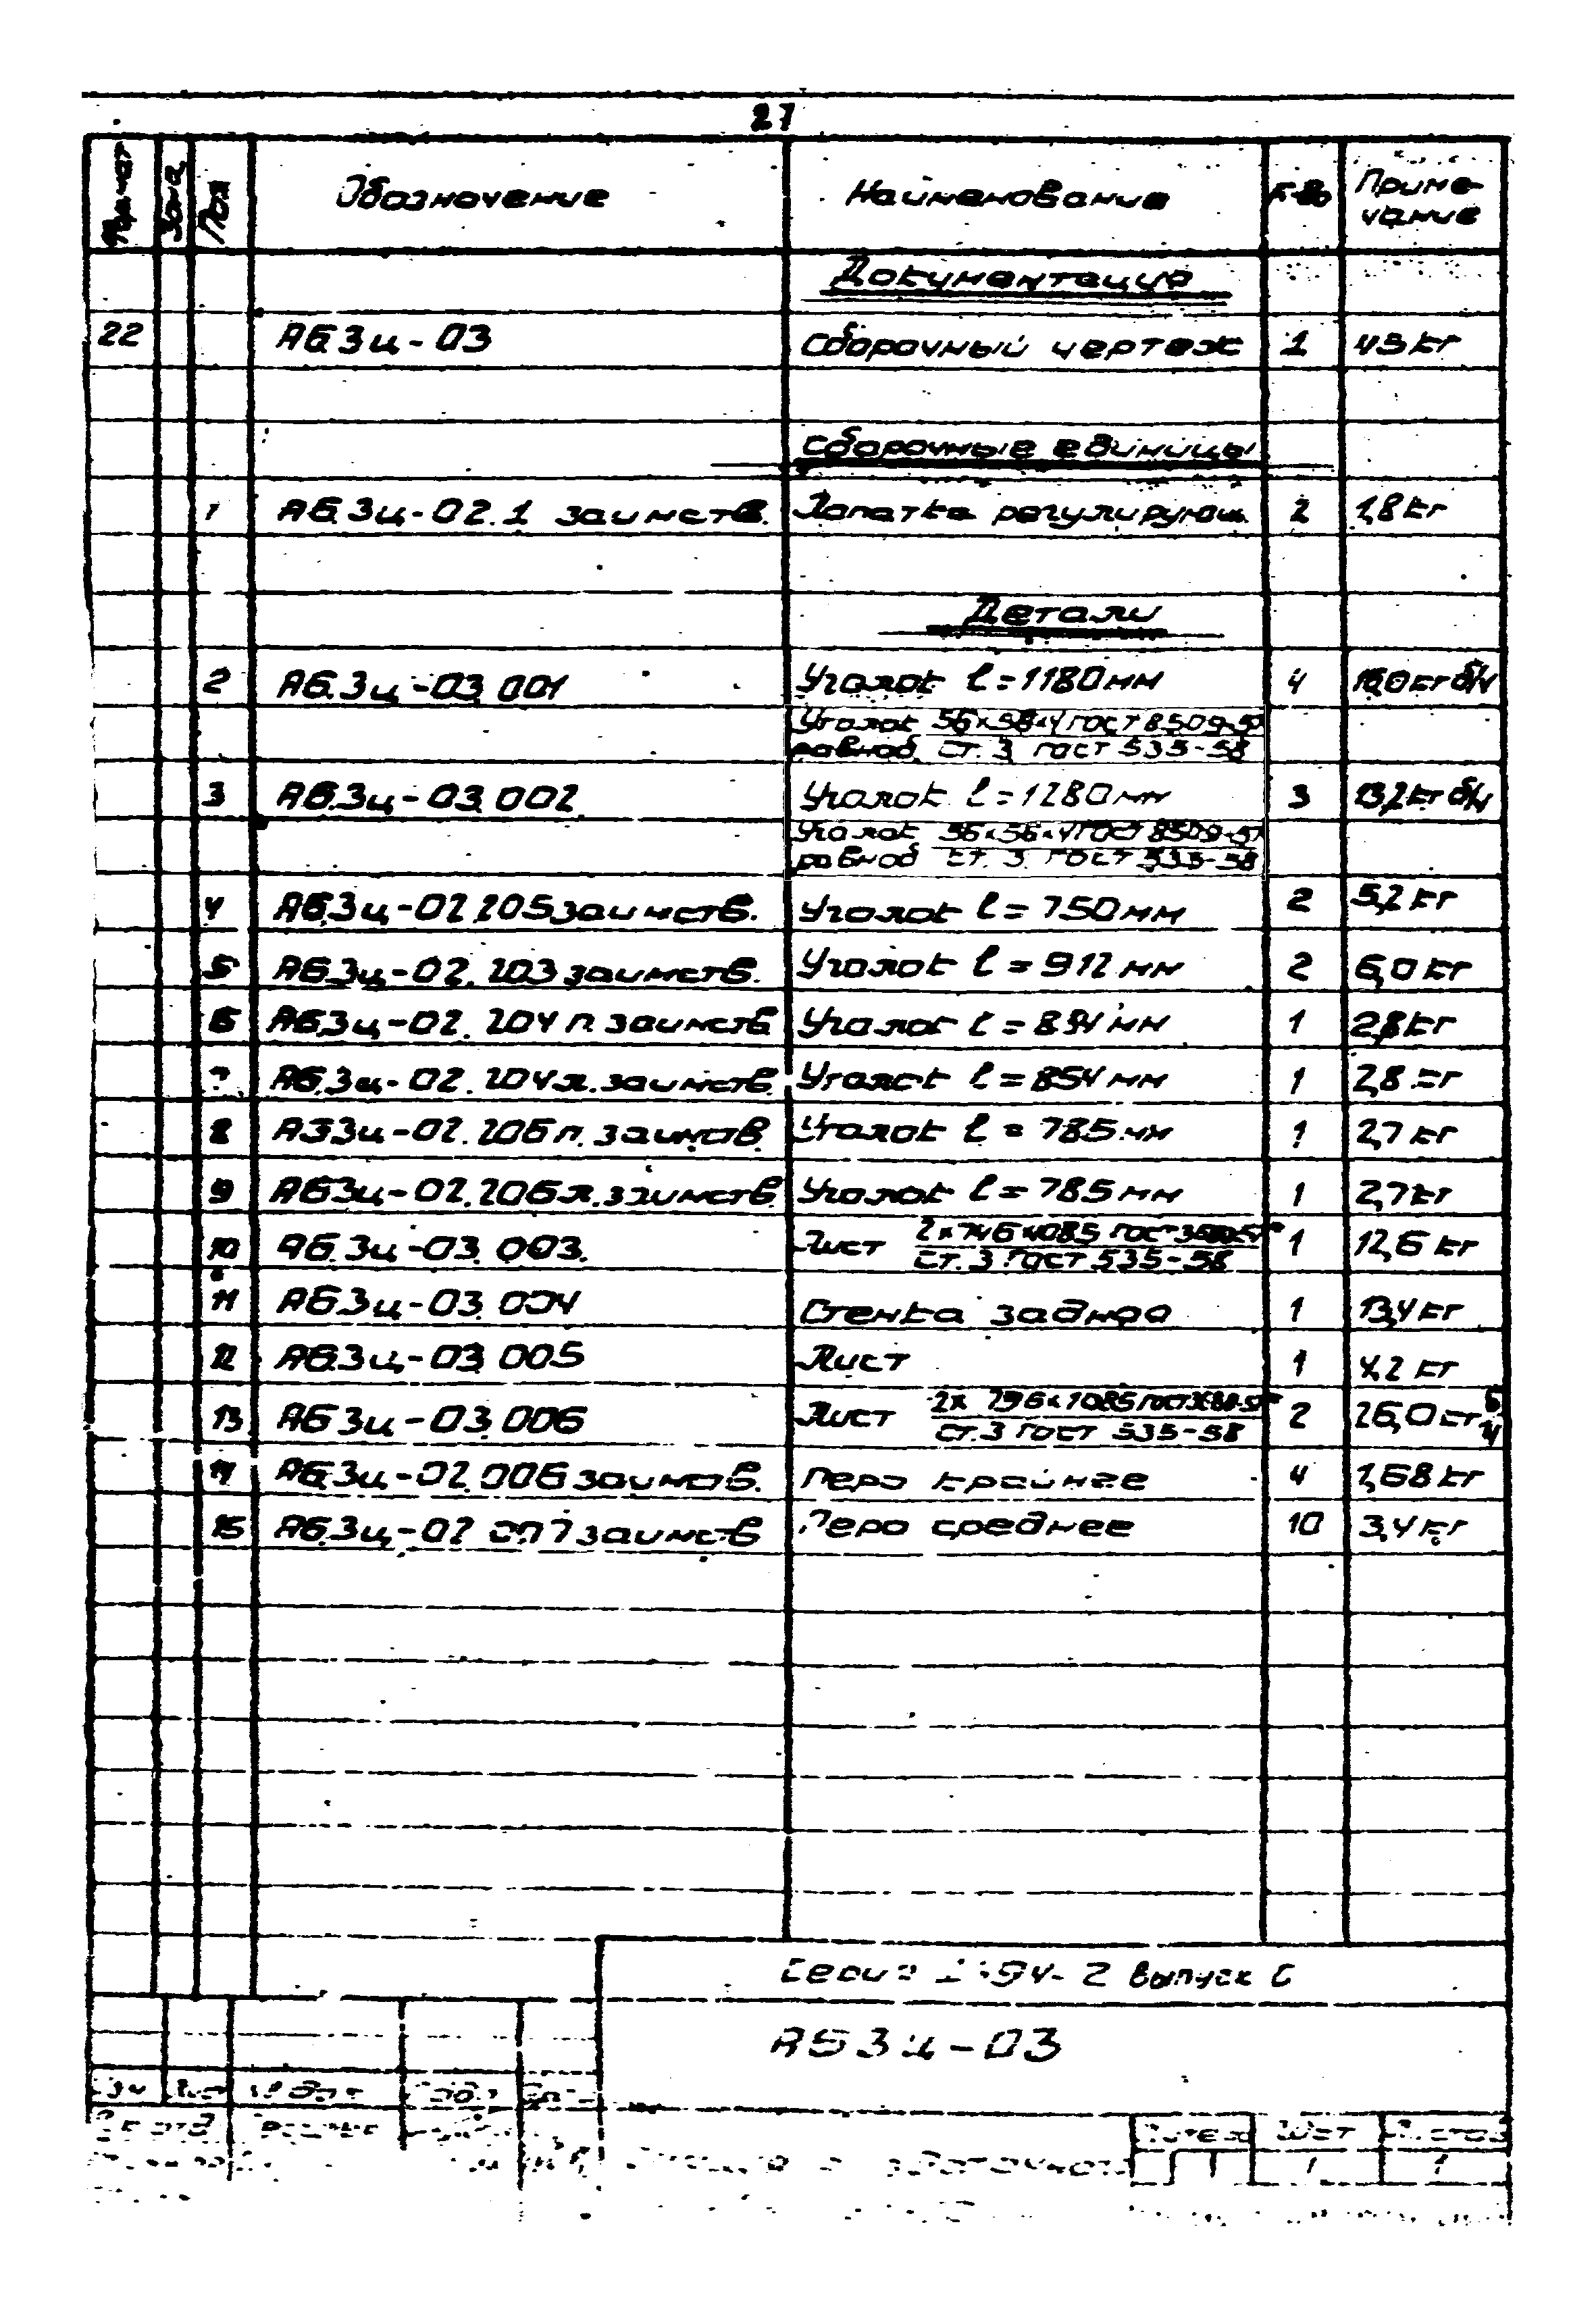 27
Формат Зона Поз Обозначение Наименование К-во Приме-
чание
Документация
22 АБ.3ц-03 Сборочный чертеж 1 43кг
Сборочные единицы
1 АБ.3ц-02.1 заимств. Лопатка регулирующ. 2 1,8кг
Детали
2 АБ.3ц-03.001 Уголок ℓ=1180мм 4 16,0кг б/ч
Уголок 56×56×4 гост 8509-57
равноб. ст.3 гост 535-58
3 АБ.3ц-03.002 Уголок ℓ=1280мм 3 13,2кг б/ч
Уголок 56×56×4 гост 8509-57
равноб ст.3 гост 535-58
4 АБ.3ц-02.205 заимств. Уголок ℓ=750мм 2 5,2кг
5 АБ.3ц-02.203 заимств. Уголок ℓ=912мм 2 6,0кг
6 АБ.3ц-02.204п. заимств Уголок ℓ= мм 1 2,8кг
7 АБ.3ц-02.204л. заимств. Уголок ℓ=854мм 1 2,8кг
8 АБ3ц-02.206п. заимств. Уголок ℓ=785мм 1 2,7кг
9 АБ3ц-02.206л. заимств Уголок ℓ=785мм 1 2,7кг
10 АБ.3ц-03.003. Лист 1 12,6кг
ст.3 гост 535-58
11 АБ.3ц-03.004 Стенка задняя 1 13,4кг
12 АБ.3ц-03.005 Лист 1 4,2кг
13 АБ3ц-03.006 Лист 2 26,0кг б/ч
ст.3 гост 535-58
14 АБ.3ц-02.006 заимств. Перо крайнее 4 1,68кг
15 АБ.3ц-02.007 заимств Перо среднее 10 3,4кг
Серия 2 выпуск
АБ3ц-03
Изм Лист № док Подп
Лист Листов
1